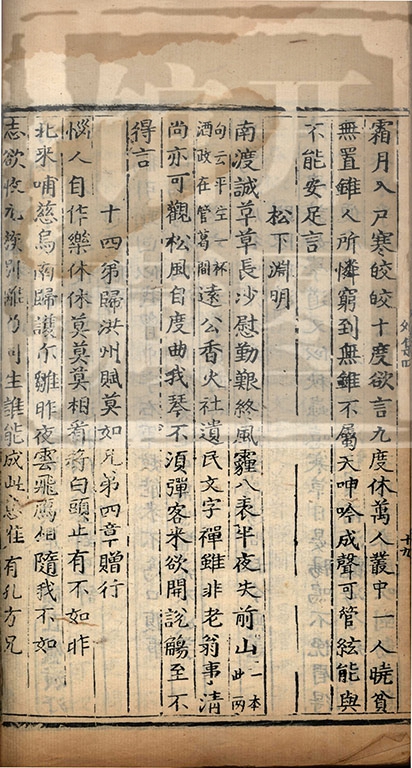 霜月入戶寒皎皎十度欲言九度休萬人叢中一人曉貧
無置錐人所憐窮到無錐不屬天呻吟成聲可管絃能與
不能安足言
松下淵明
南渡誠草草長沙慰勤艱終風霾八表半夜失前山一本此兩
句云平生一杯酒政在管葛間遠公香火社遺民文字禪雖非老翁事清
尚亦可觀松風自度曲我琴不須彈客來欲開說觴至不
得言
十四第歸洪州賦莫如兄第四章贈行
惱人自作樂休休莫莫莫相看將白頭止有不如昨
北來哺慈烏南歸護尓雛昨夜雲飛鴈相隨我不如
志欲收九族別離乃同生誰能成此意惟有孔方兄